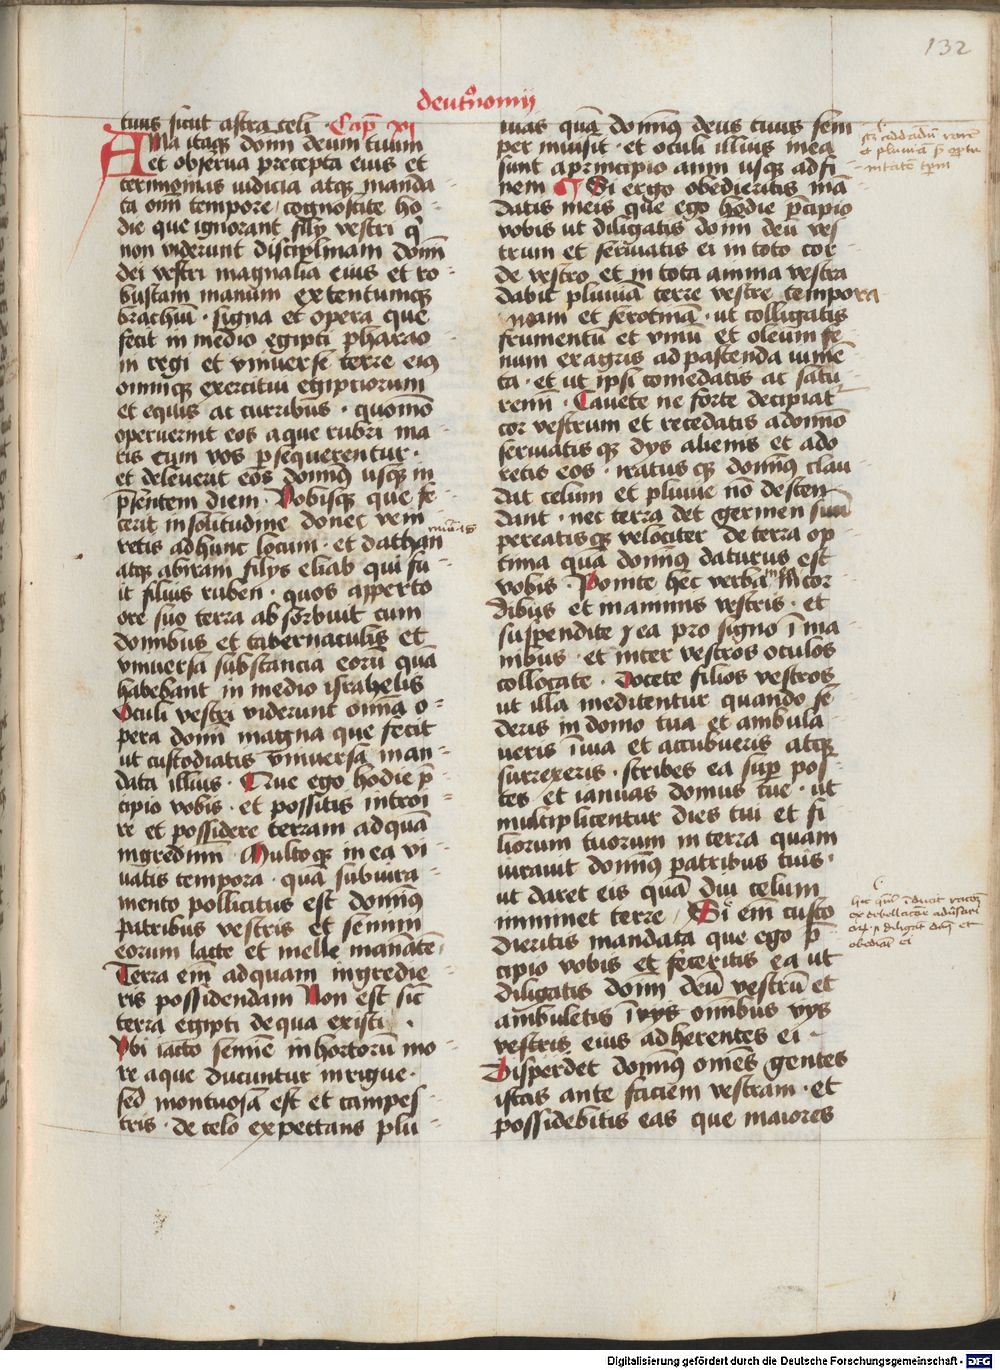 132
deut'nomij
tuus sicut astra celi · Cap XI
AMa itaq̇ dom̄ deum tuum
et obserua precepta eius et
cerimonias iudicia atq̇ manda
ta om̄i tempore / cognoscite ho
die que ignorant filij vestri q̇
non viderunt disciplinam domī
dei vestri magnalia eius et ro
bustam manum extentumq̇
brachiū · signa et opera que
fecit in medio egipti pharao
ni regi et vniuerse terre eiꝰ
omniq̇ exercitui egiptiorum
et equis ac curribus · quomō
operuerint eos aque rubri ma
ris cum vos p̄sequerentur ·
et deleuerit eos dominꝰ usq̇ in
p̄sentem diem · Vobisq̇ que fe
cerit in solitudine donec veni
retis ad hunc locum · et dathan
atq̇ abiram filijs eliab qui fu
it filius ruben · quos apperto
ore suo terra absorbuit cum
domibus et tabernaculis et
vniuersa substancia eorū quā
habebant in medio israhelis
Oculi vestri viderunt omīa o
pera domī magna que fecit
ut custodiatis vniuersa man
data illius · Que ego hodie p̄
cipio vobis · et possitis introi
re et possidere terram ad quā
ingredimī · Multoq̇ in ea vi
uatis tempora · quā sub iura
mento pollicitus est dominꝰ
patribus vestris et semini
eorum lacte et melle manātē
Terra em̄ ad quam ingredie
ris possidendam Non est sic̄
terra egipti de qua existi ·
Vbi iacto semīe in hortorū mo
re aque ducuntur inrigue ·
sed montuosa est et campes
tris · de celo expectans plu
uias quā dominꝰ deus tuus sem
per inuisit · et oculi illius in ea
sunt a principio anni usq̇ ad fi
nem ¶ Si ergo obedieritis mā
datis meis que ego hodie p̄cipio
vobis ut diligatis dom̄ deū ves
trum et seruiatis ei in toto cor
de vestro et in tota anima vestra
dabit pluuiā terre vestre tempora
niam et serotinā · ut colligatis
frumentū et vinū et oleum fe
num ex agris ad pascenda iumē
ta · et ut ipsi comedatis ac satu
remī · Cauete ne forte decipiat
cor vestrum et recedatis a domīo
seruiatis q̇ dijs alienis et ado
retis eos · iratus q̇ dominꝰ clau
dat celum et pluuie nō descen
dant · nec terra det germen suū
pereatisq̇ velociter de terra op
tima quā dominꝰ daturus est
vobis · Ponite hec verba in cor
dibus et in animis vestris · et
suspendite ea pro signo ī ma
nibus · et inter vestros oculos
collocate · Docete filios vestros
ut illa meditentur quando se
deris in domo tua et ambula
ueris ī via et accubueris atq̇
surrexeris · scribes ea sup̄ pos
tes et ianuas domus tue · ut
multiplicentur dies tui et fi
liorum tuorum in terra quam
iurauit dominꝰ patribus tuis ·
ut daret eis quā diu celum
imminet terre / Si em̄ custo
dieritis mandata que ego p̄
cipio vobis et feceritis ea ut
diligatis dom̄ deū vestrū et
ambuletis ī vijs omibus vijs
vestris eius adherentes ei
Disperdet dominꝰ omēs gentes
istas ante faciem vestram · et
possidebitis eas que maiores
Digitalisierung gefördert durch die Deutsche Forschungsgemeinschaft - DFG